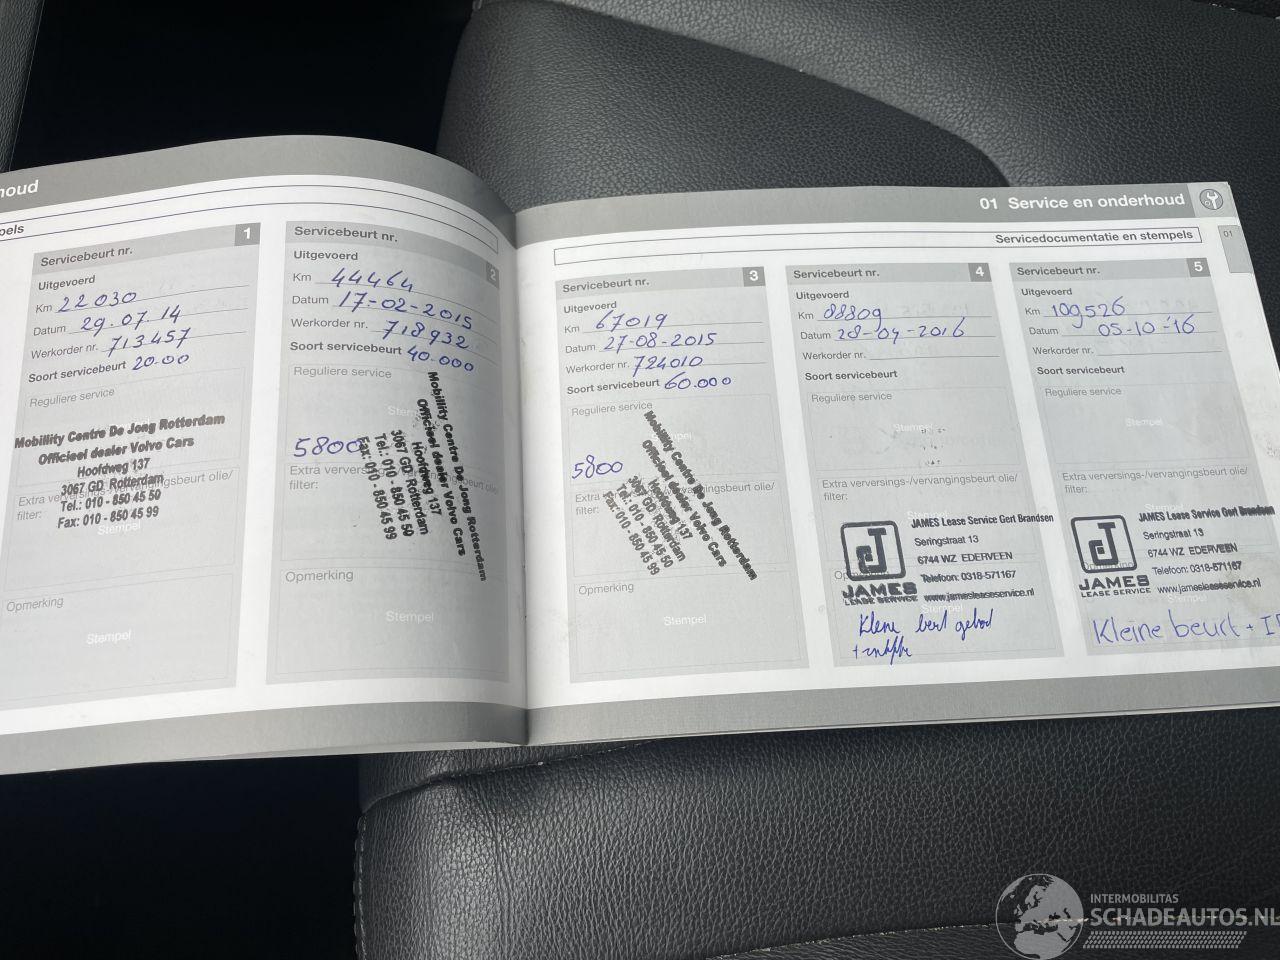 houd
pels
Servicebeurt nr. 1
Uitgevoerd
Km 22030
Datum 29.07.14
Werkorder nr. 713457
Soort servicebeurt 20.00
Reguliere service
Mobillity Centre De Jong Rotterdam
Officieel dealer Volvo Cars
Hoofdweg 137
3067 GD Rotterdam
Tel.: 010 - 850 45 50
Fax: 010 - 850 45 99
Extra verversings-/vervangingsbeurt olie/
filter:
Stempel
Opmerking
Stempel
Servicebeurt nr. 2
Uitgevoerd
Km 44464
Datum 17-02-2015
Werkorder nr. 718932
Soort servicebeurt 40.000
Reguliere service
Stempel
5800
Mobillity Centre De Jong Rotterdam
Officieel dealer Volvo Cars
Hoofdweg 137
3067 GD Rotterdam
Tel.: 010 - 850 45 50
Fax: 010 - 850 45 99
Extra verversings-/vervangingsbeurt olie/
filter:
Opmerking
Stempel
01 Service en onderhoud
Servicedocumentatie en stempels
01
Servicebeurt nr. 3
Uitgevoerd
Km 67019
Datum 27-08-2015
Werkorder nr. 724010
Soort servicebeurt 60.000
Reguliere service
Stempel
5800
Mobillity Centre De Jong Rotterdam
Officieel dealer Volvo Cars
Hoofdweg 137
3067 GD Rotterdam
Tel.: 010 - 850 45 50
Fax: 010 - 850 45 99
Extra verversings-/vervangingsbeurt olie/
filter:
Opmerking
Stempel
Servicebeurt nr. 4
Uitgevoerd
Km 88809
Datum
Werkorder nr.
Soort servicebeurt
Reguliere service
Stempel
Extra verversings-/vervangingsbeurt olie/
filter:
JAMES Lease Service Gert Brandsen
Seringstraat 13
6744 WZ EDERVEEN
Telefoon: 0318-571167
www.jamesleaseservice.nl
JAMES
LEASE SERVICE
Opmerking
Stempel
Servicebeurt nr. 5
Uitgevoerd
Km 109526
Datum 05-10-'16
Werkorder nr.
Soort servicebeurt
Reguliere service
Stempel
Extra verversings-/vervangingsbeurt olie/
filter:
JAMES Lease Service Gert Brandsen
Seringstraat 13
6744 WZ EDERVEEN
Telefoon: 0318-571167
www.jamesleaseservice.nl
JAMES
LEASE SERVICE
Opmerking
Stempel
Kleine beurt +
INTERMOBILITAS
SCHADEAUTOS.NL